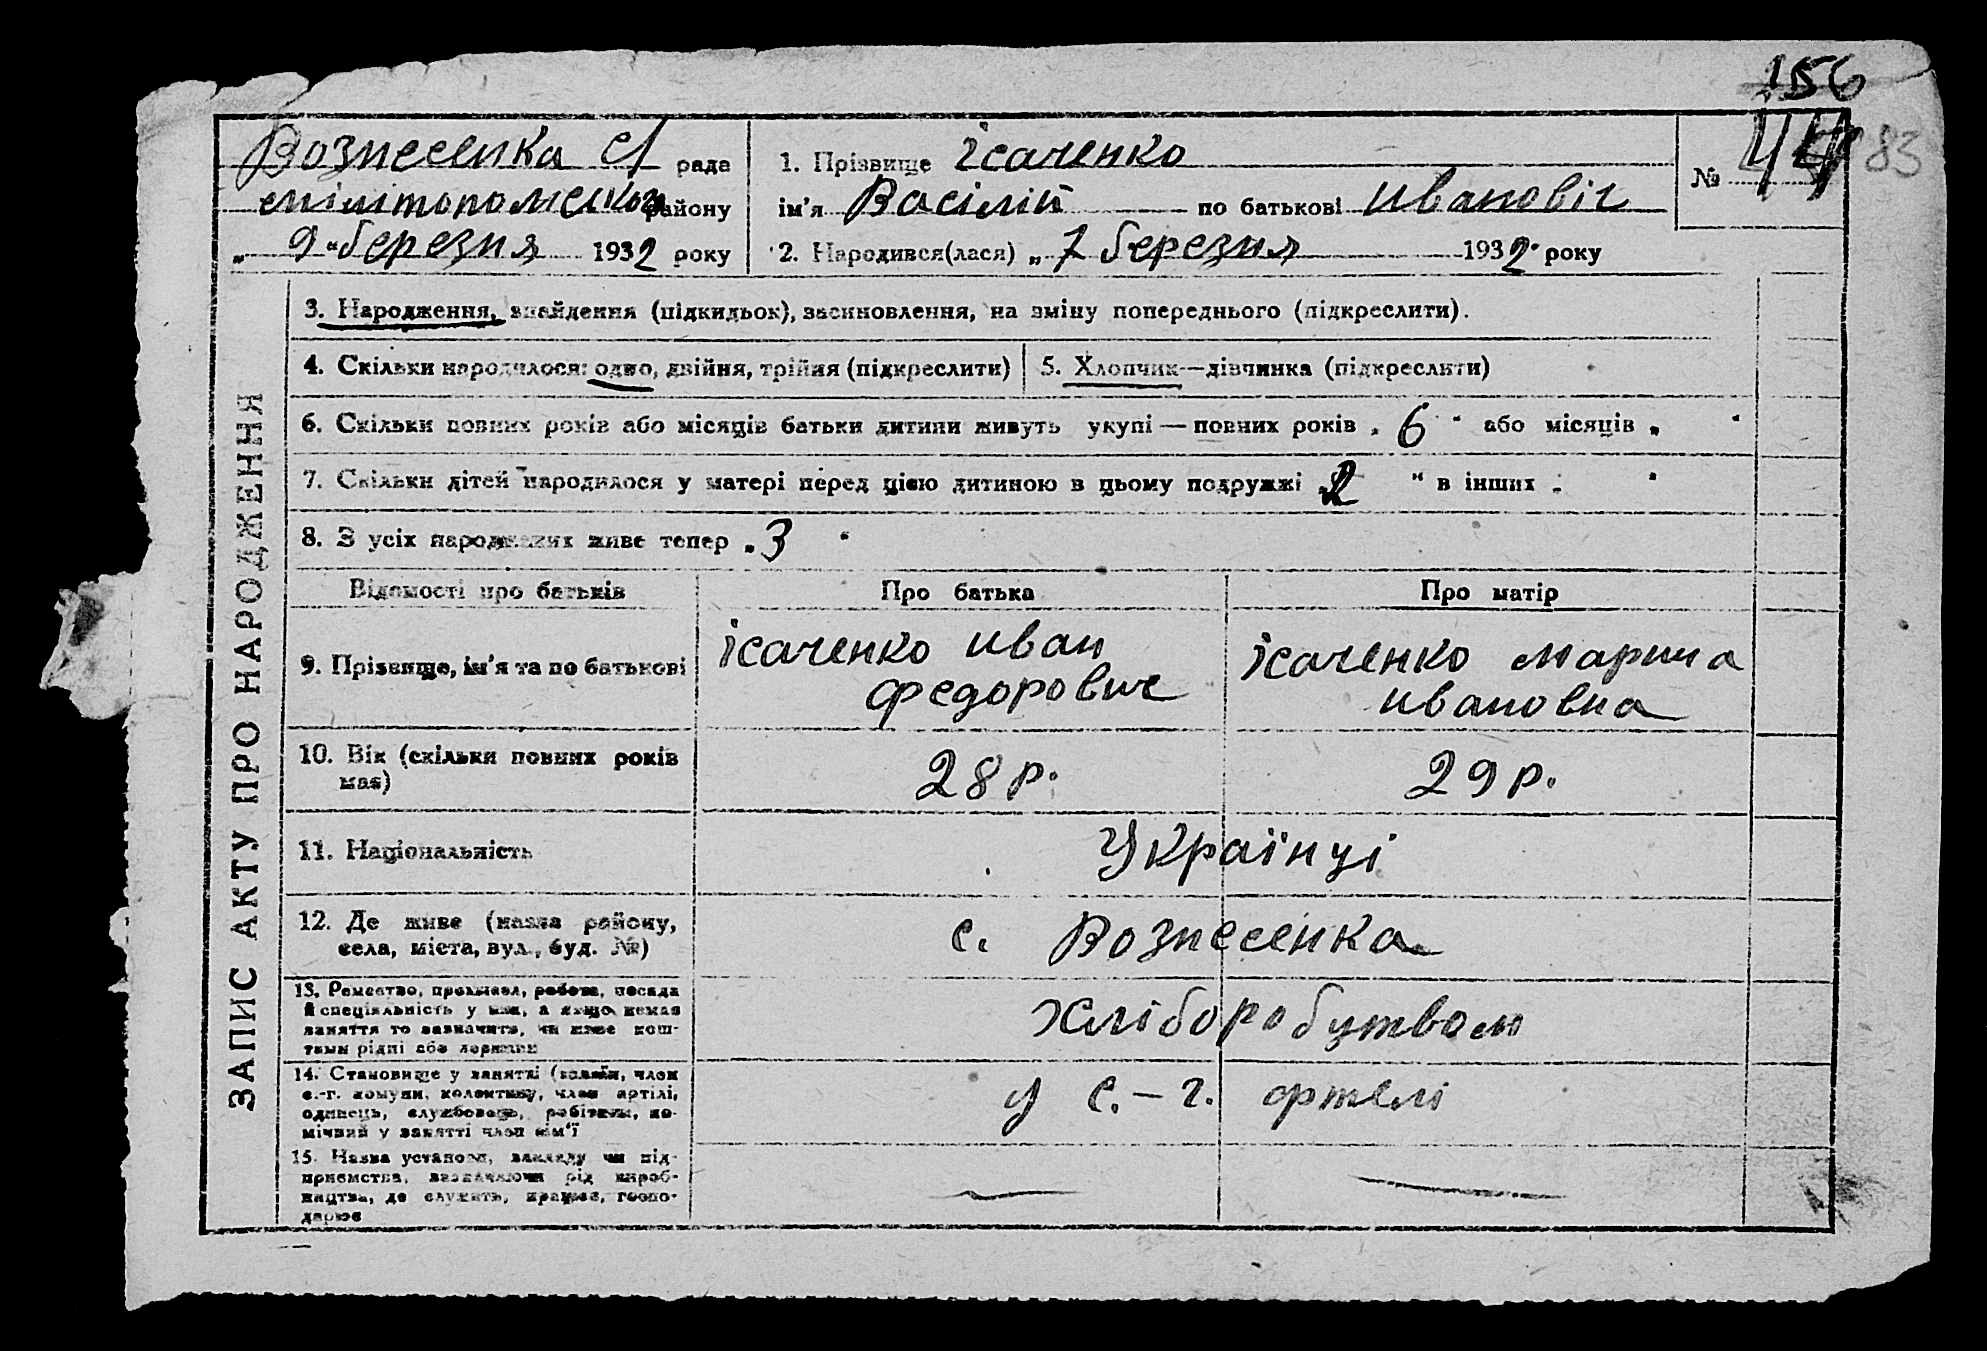 156
Вознесенка с/ рада
мілітопольськог району
„ 9 " березня 1932 року
1. Прізвище Ісаченко
ім'я Васілій по батькові Ивановіч
2. Народився(лася) „ 7 березня 1932 року
№ 44 83
ЗАПИС АКТУ ПРО НАРОДЖЕННЯ
3. Народження, знайдення (підкидьок), засиновлення, на зміну попереднього (підкреслити).
4. Скільки народилося: одно, двійня, трійня (підкреслити)
5. Хлопчик—дівчинка (підкреслити)
6. Скільки повних років або місяців батьки дитини живуть укупі — повних років „ 6 " або місяців „ "
7. Скільки дітей народилося у матері перед цією дитиною в цьому подружжі „ 2 " в інших „ "
8. З усіх народжених живе тепер „ 3 "
Відомості про батьків Про батька Про матір
9. Прізвище, ім'я та по батькові
Ісаченко Иван
Федорович
Ісаченко Марина
Ивановна
10. Вік (скільки повних років
має)
28 р. 29 р.
11. Національність Українці
12. Де живе (назва району,
села, міста, вул., буд. №)
с. Вознесенка
13. Ремество, промисел, робота, посада
й спеціяльність у них, а якщо немає
заняття то зазначити, чи живе кош-
тами рідні або держави
Хліборобутвом
14. Становище у занятті (хазяїн, член
с.-г. комуни, колективу, член артілі,
одинець, службовець, робітник, по-
мічний у занятті член сім'ї
у с.-г. ортелі
15. Назва установи, закладу чи під-
приємства, зазначаючи рід вироб-
ництва, де служить, працює, госпо-
дарює